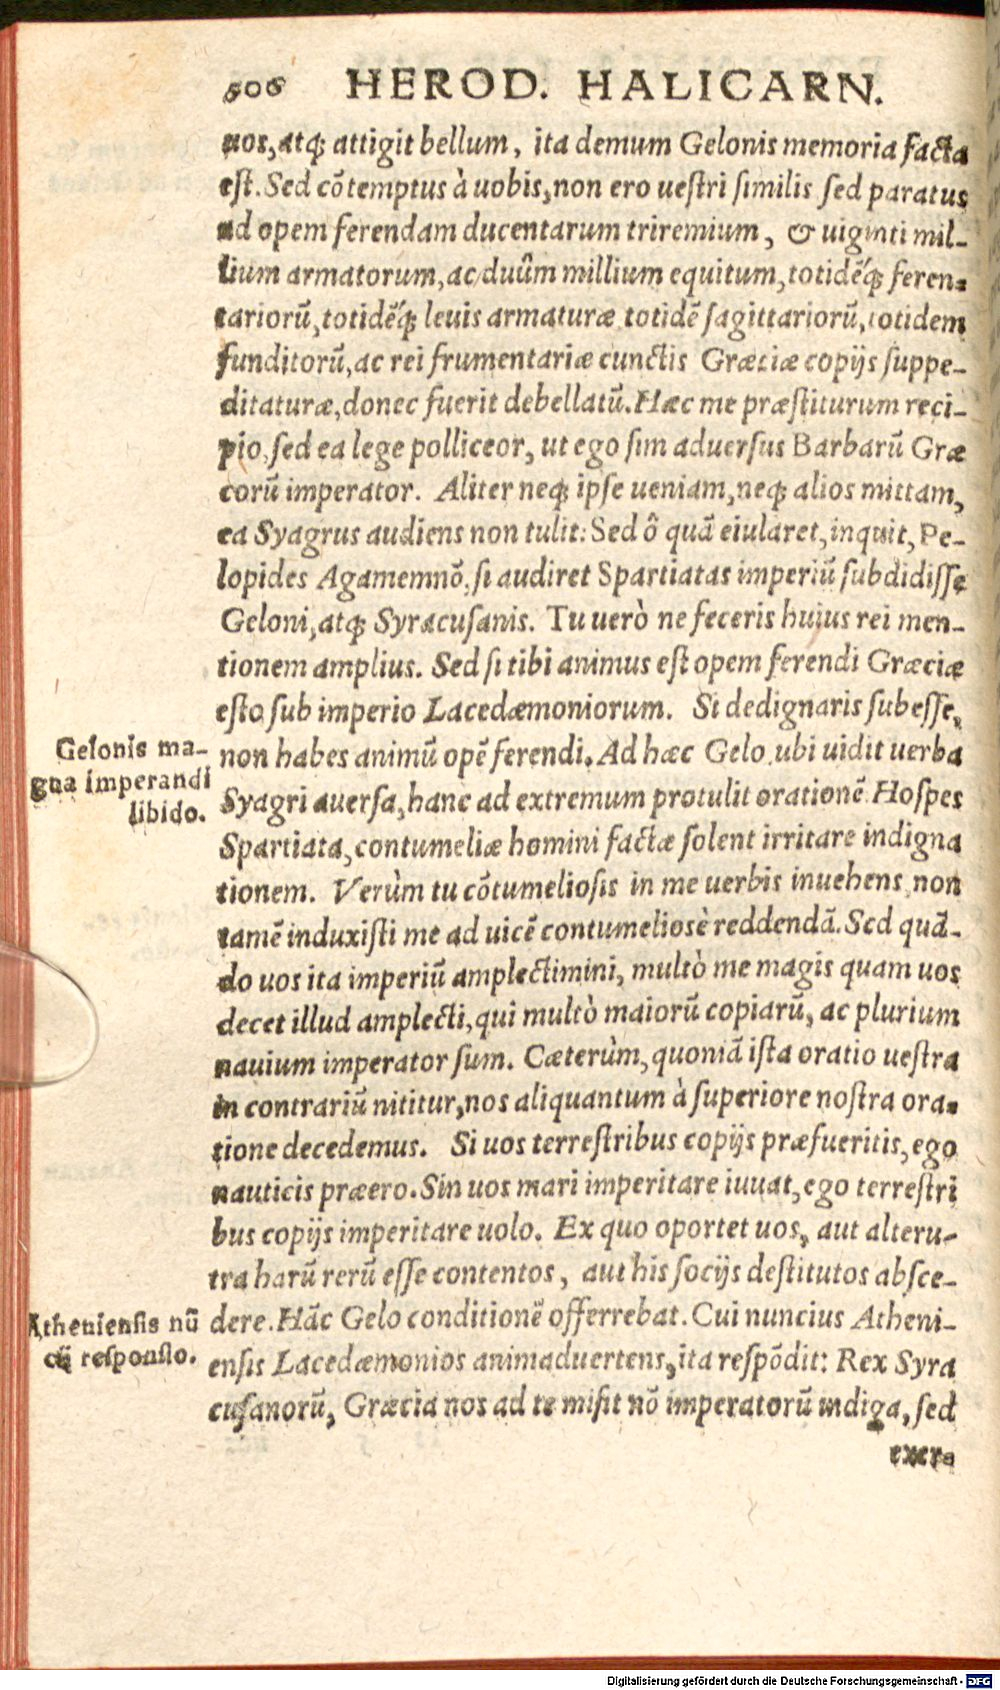 606 HEROD. HALICARN.
uos, atq; attigit bellum, ita demum Gelonis memoria facta
est. Sed cõtemptus à uobis, non ero uestri similis sed paratus
ad opem ferendam ducentarum triremium, & uiginti mil-
lium armatorum, ac duûm millium equitum, totidẽq́; feren-
tariorũ, totidẽq́; leuis armaturæ totidẽ sagittariorũ, totidem
funditorũ, ac rei frumentariæ cunctis Græciæ copijs suppe-
ditaturæ, donec fuerit debellatũ. Hæc me præstiturum reci-
pio, sed ea lege polliceor, ut ego sim aduersus Barbarũ Græ
corũ imperator. Aliter neq; ipse ueniam, neq; alios mittam,
ea Syagrus audiens non tulit: Sed ô quã eiularet, inquit, Pe-
lopides Agamemnõ, si audiret Spartiatas imperiũ subdidisse
Geloni, atq; Syracusanis. Tu uerò ne feceris huius rei men-
tionem amplius. Sed si tibi animus est opem ferendi Græciæ
esto sub imperio Lacedæmoniorum. Si dedignaris subesse,
non habes animũ opẽ ferendi. Ad hæc Gelo ubi uidit uerba
Gelonis ma-
gna imperandi
libido.
Syagri auersa, hanc ad extremum protulit orationẽ. Hospes
Spartiata, contumeliæ homini factæ solent irritare indigna
tionem. Verùm tu cõtumeliosis in me uerbis inuehens non
tamẽ induxisti me ad uicẽ contumeliosè reddendã. Sed quã-
do uos ita imperiũ amplectimini, multò me magis quam uos
decet illud amplecti, qui multò maiorũ copiarũ, ac plurium
nauium imperator sum. Cæterùm, quoniã ista oratio uestra
in contrariũ nititur, nos aliquantum à superiore nostra ora-
tione decedemus. Si uos terrestribus copijs præfueritis, ego
nauticis præero. Sin uos mari imperitare iuuat, ego terrestri
bus copijs imperitare uolo. Ex quo oportet uos, aut alteru-
tra harũ rerũ esse contentos, aut his socijs destitutos absce-
dere. Hãc Gelo conditionẽ offerrebat. Cui nuncius Atheni-
Atheniensis nũ
cij responsio.
ensis Lacedæmonios animaduertens, ita respõdit: Rex Syra
cusanorũ, Græcia nos ad te misit nõ imperatorũ indiga, sed
exer-
Digitalisierung gefördert durch die Deutsche Forschungsgemeinschaft - DFG